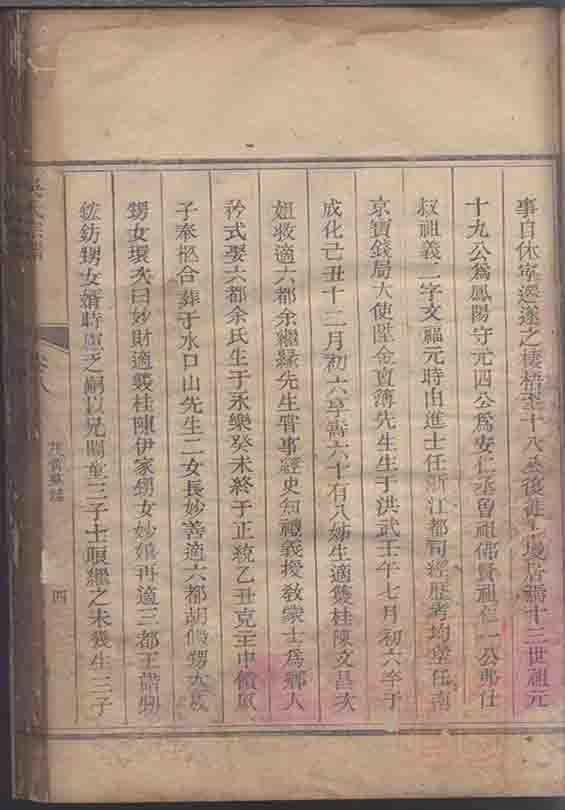 事自休寧遷遂之棲梧至十八丞復徙上墁居焉十三世祖元
十九公為鳳陽守元四公為安仁丞曾祖佛賢祖仁一公弗仕
叔祖義二字文福元時由進士任浙江都司經歷考均 任南
京寶錢局大使陞金寶簿先生生于洪武壬午七月初六卒于
成化己丑十二月初六享壽六十有八姊生適雙桂陳文昌次
姐救適六都余繼緣先生嘗事經史知禮義授教蒙士為鄉人
矜式娶六都余氏生于永樂癸未終于正統乙丑克 中領
子奉柩合葬于水口山先生二女長妙善適六都胡 甥女
甥女環次曰妙財適雙桂陳伊家甥女妙 再適三都王
鈁甥女 時 之嗣以兄 童三子士 繼之未幾生三子
四